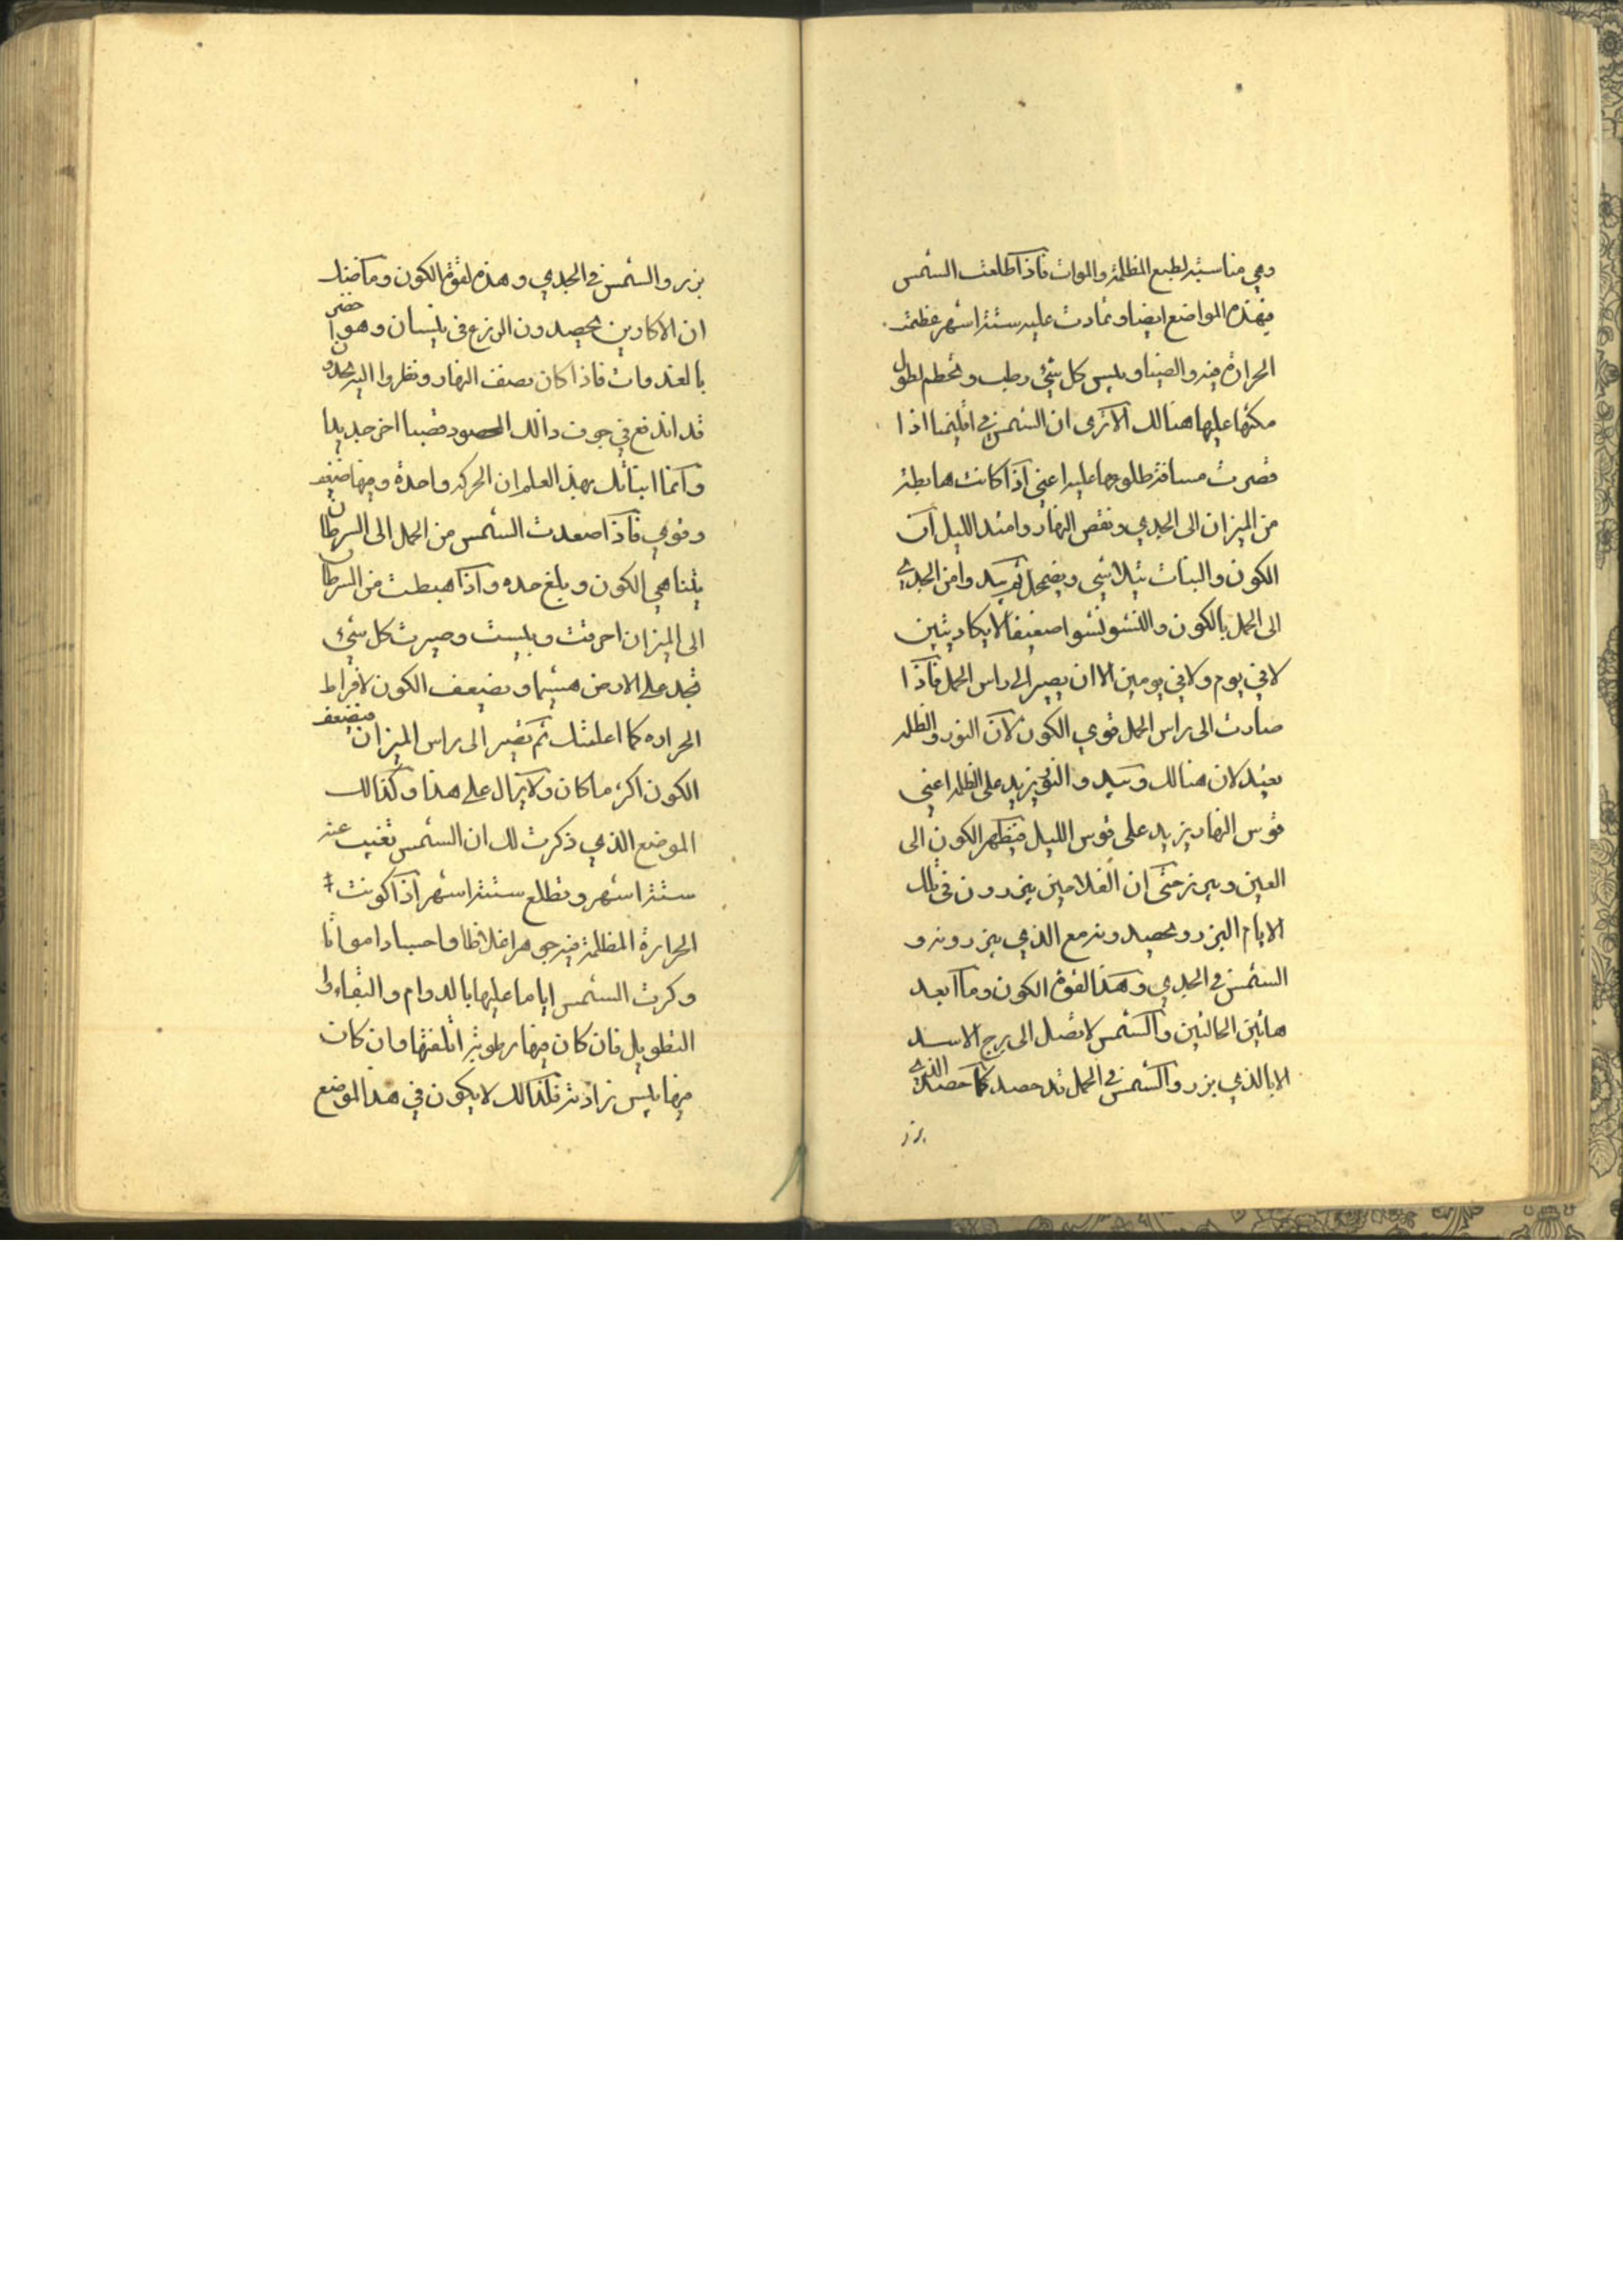 وهي مناسبة لطبع المظلمة والموات فاذا طلعت الشمس
فهذه المواضع ايضا وتمادت عليه ستة اشهر عظمت
الحرارة فيه والضيا ويبس كل شيء رطب وتحطم لطول
مكثها عليها هنالك الا ترى ان الشمس في اقليمنا اذا
قصرت مسافة طلوعها عليه اعني اذا كانت هابطة
من الميزان الى الجدي ونقص النهار وامتد الليل ان
الكون والنبات يتلاشي ويضمحل وامن الجدي
الى الحمل بالكون والنشو نشوا ضعيفا لا يكاد يتبين
لا في يوم ولا في يومين الا ان يصير الى راس الحمل فاذا
صارت الى راس الحمل قوي الكون لان النور والظلمه
يعتدلان هنالك والنور يزيد على الظلمه اعني
قوس النهار يزيد على قوس الليل فيظهر الكون الى
العين ويبرز حتى ان الفلامين يبزرون في تلك
الايام البزر ويحصدونه مع الذي يبزرونه و
الشمس في الجدي وهذا لقوة الكون وما ابعد
هاتين الحالتين والشمس لا تصل الى برج الاسد
الا بالذي بزر والشمس في الحمل قد حصد كما حصد الذي
بزر
بزر والشمس في الجدي وهذه لقوة الكون وما
ان الاكارين يحصدون الزرع في نيسان وهو اخضر
بالغدوات فاذا كان نصف النهار ونظروا اليه يجدون
قد اندفع في جوف ذالك المحصود قصبا اخر جديدا
وانما انباتك بهذ العلم ان الحركه واحدة ومنها ضعيف
وقوي فاذا صعدت الشمس من الحمل الى السرطان
يتناهي الكون ويبلغ حده واذا هبطت من السرطان
الى الميزان احرقت ويبست وصيرت كل شيء
تجد على الارض هشيما ويضعف الكون لافراط
الحراره كما اعلمتك ثم تصير الى راس الميزان فيضعف
الكون اكثر ما كان ولا يزال على هذا وكذالك
الموضع الذي ذكرت لك ان الشمس تغيب عنه
ستة اشهر وتطلع ستة اشهر اذا كونت
الحرارة المظلمة فيه جوهرا غلاظا واجسادا مواتا
وكرت الشمس اياما عليها بالدوام والبقاء و
التطويل فان كان فيها رطوبة اتلفتها وان كان
فيها يبس زادته فلذالك لا يكون في هذا الموضع